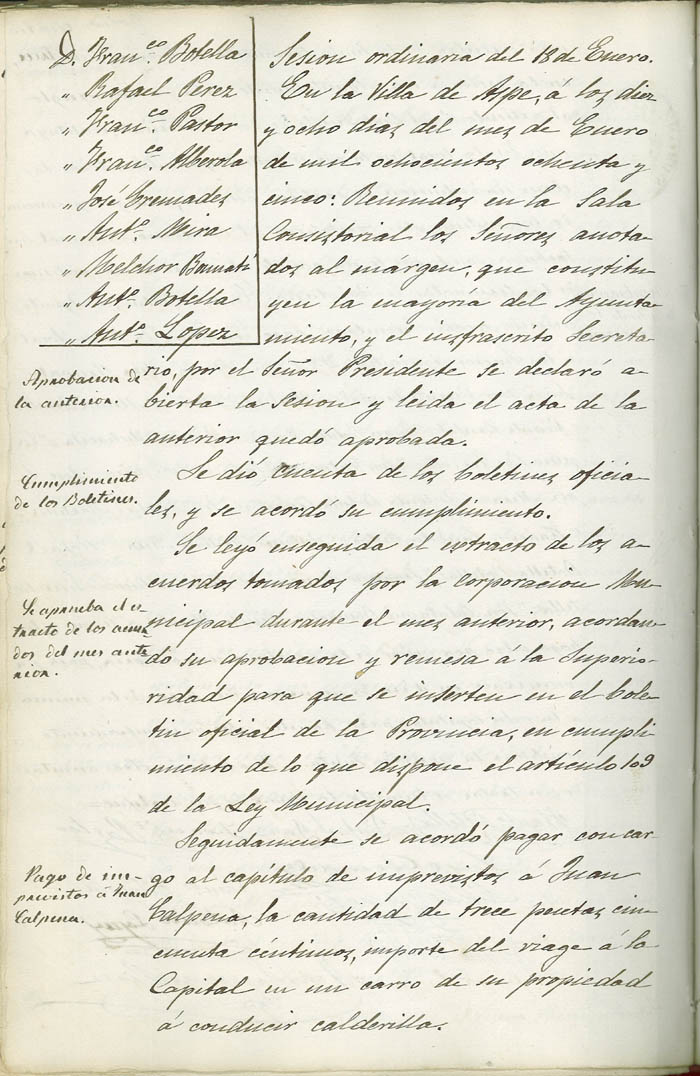 D. Fran.co Botella
" Rafael Perez
" Fran.co Pastor
" Fran.co Alberola
" José Cremades
" Ant.o Mira
" Melchor
" Ant.o Botella
" Ant.o Lopez
Sesion ordinaria del 18 de Enero.
En la Villa de Aspe, á los diez
y ocho dias del mes de Enero
de mil ochocientos ochenta y
cinco: Reunidos en la Sala
Consistorial los Señores anota-
dos al márgen, que constitu-
yen la mayoría del Ayunta-
miento, y el infrascrito Secreta-
rio, por el Señor Presidente se declaró a-
bierta la Sesion y leida el acta de la
anterior quedó aprobada.
Aprobacion de
la anterior.
Se dió cuenta de los boletines oficia-
les, y se acordó su cumplimiento.
Cumplimiento
de los Boletines.
Se leyó enseguida el extracto de los a-
cuerdos tomados por la corporacion Mu-
nicipal durante el mes anterior, acordan-
do su aprobacion y remesa á la Superio-
ridad para que se inserten en el bole-
tin oficial de la Provincia, en cumpli-
miento de lo que dispone el artículo 109
de la Ley Municipal.
Se aprueba el es-
tracto de los acuer-
dos del mes ante
rior.
Seguidamente se acordó pagar con car-
go al capítulo de imprevistos á Juan
Calpena, la cantidad de trece pesetas cin-
cuenta céntimos, importe del viage á la
Capital en un carro de su propiedad
á conducir calderilla.
Pago de im-
previstos á Juan
Calpena.